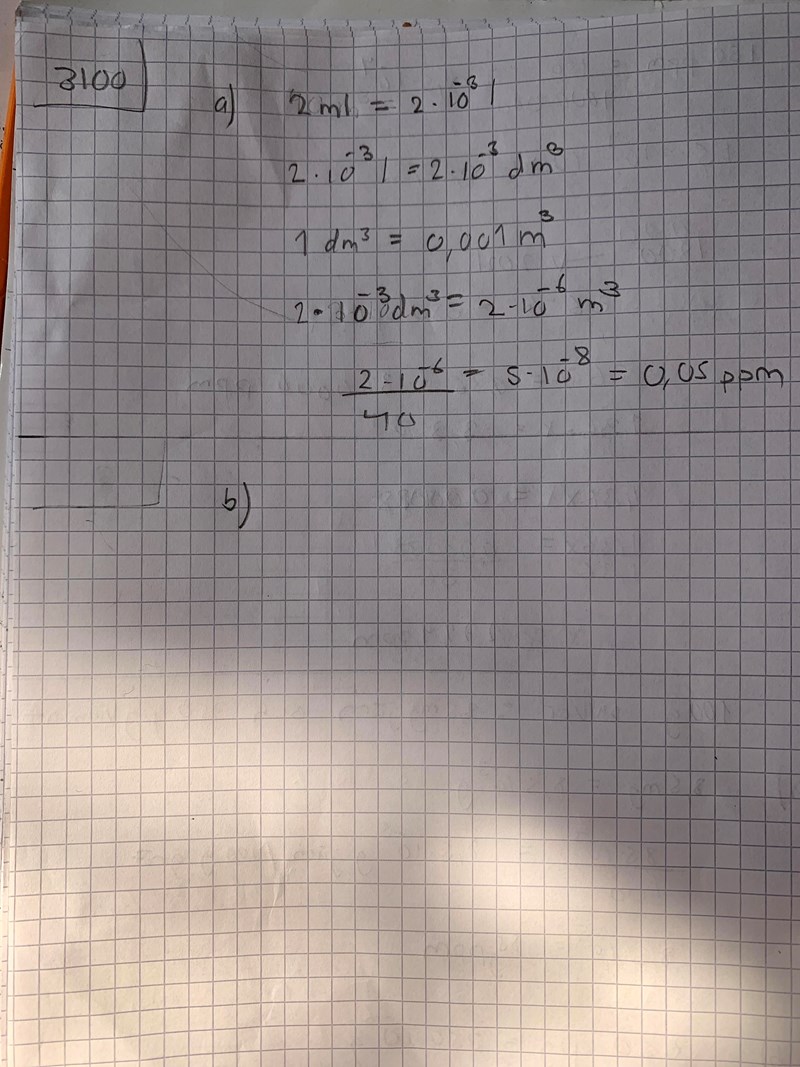 3100
a) 2 ml = 2 · 10⁻³ l
2 · 10⁻³ l = 2 · 10⁻³ dm³
1 dm³ = 0,001 m³
2 · 10⁻³ dm³ = 2 · 10⁻⁶ m³
2 · 10⁻⁶ / 40 = 5 · 10⁻⁸ = 0,05 ppm
b)